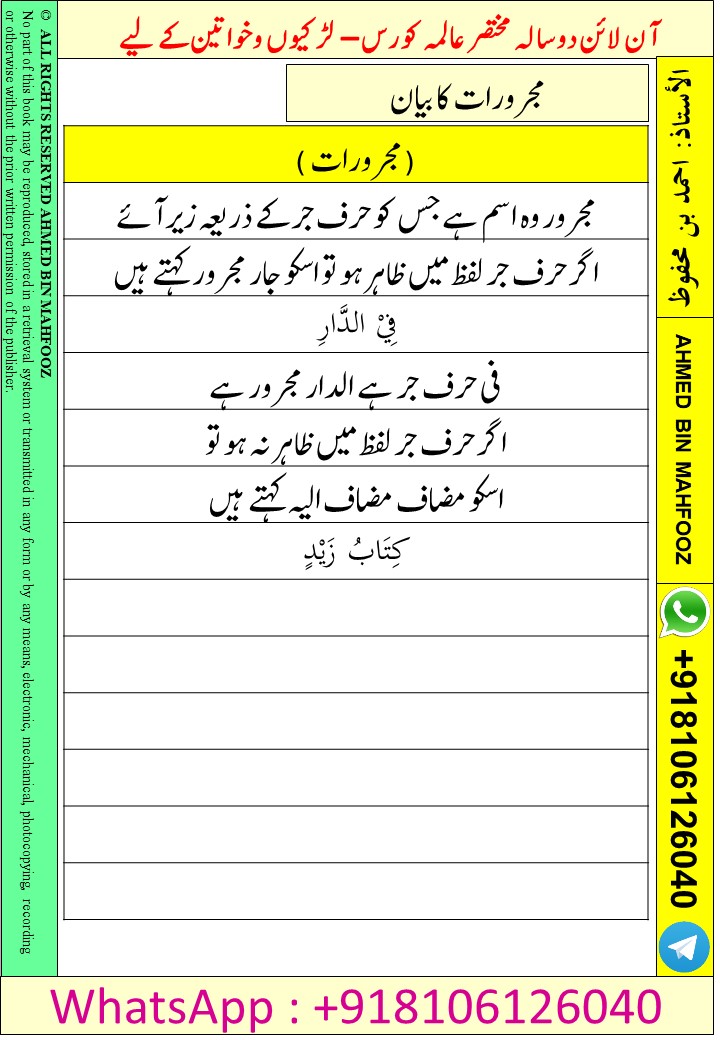 آن لائن دو سالہ مختصر عالمہ کورس – لڑکیوں و خواتین کے لیے
مجرورات کا بیان
( مجرورات )
مجرور وہ اسم ہے جس کو حرف جر کے ذریعہ زیر آئے
اگر حرف جر لفظ میں ظاہر ہو تو اسکو جار مجرور کہتے ہیں
فِيْ الدَّارِ
فی حرف جر ہے الدار مجرور ہے
اگر حرف جر لفظ میں ظاہر نہ ہو تو
اسکو مضاف مضاف الیہ کہتے ہیں
كِتَابُ زَيْدٍ
الأستاذ: احمد بن محفوظ
AHMED BIN MAHFOOZ
+918106126040
© ALL RIGHTS RESERVED AHMED BIN MAHFOOZ
No part of this book may be reproduced, stored in a retrieval system or transmitted in any form or by any means, electronic, mechanical, photocopying, recording
or otherwise without the prior written permission of the publisher.
WhatsApp : +918106126040